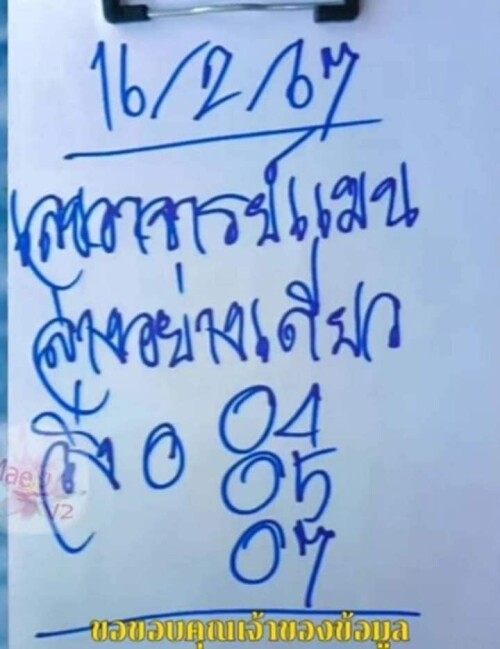 16/2/67
เลขอาจารย์แมน
ล่างอย่างเดียว
วิ่ง 0 04
05
07
ขอขอบคุณเจ้าของข้อมูล